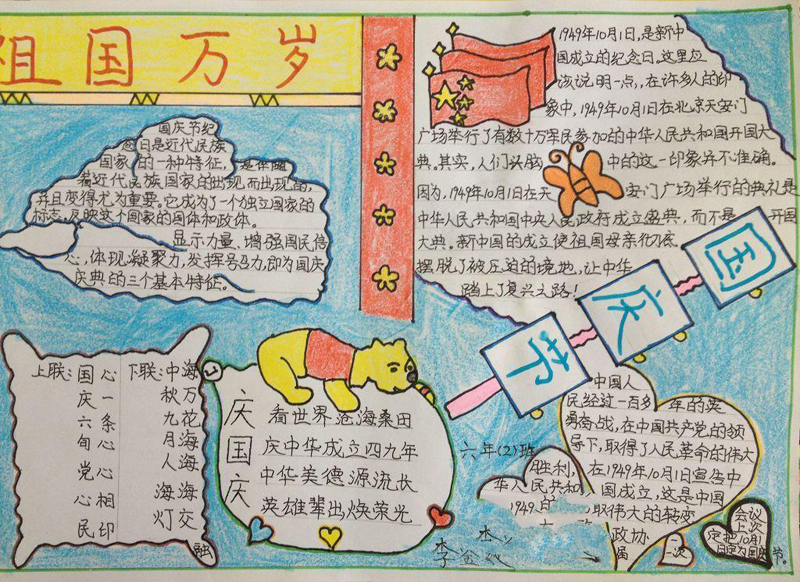 祖国万岁
国庆节纪
念日是近代民族
国家的一种特征,是伴随
着近代民族国家的出现而出现的,
并且变得尤为重要。它成为了一个独立国家的
标志,反映这个国家的国体和政体。
显示力量、增强国民信
心,体现凝聚力,发挥号召力,即为国庆
庆典的三个基本特征。
1949年10月1日,是新中
国成立的纪念日,这里应
该说明一点,在许多人的印
象中,1949年10月1日在北京天安门
广场举行了有数十万军民参加的中华人民共和国开国大
典。其实,人们头脑中的这一印象并不准确。
因为,1949年10月1日在天安门广场举行的典礼是
中华人民共和国中央人民政府成立盛典,而不是开国
大典。新中国的成立使祖国母亲彻底
摆脱了被压迫的境地,让中华
踏上了复兴之路!
国庆节
上联:国庆六旬党心民
心一条心心相印
下联:中秋九月人海灯
海万花海海海交融
庆国庆
看世界沧海桑田
庆中华成立四九年
中华美德源流长
英雄辈出焕荣光
六年(2)班
中国人
民经过一百多年的英
勇奋战,在中国共产党的领
导下,取得了人民革命的伟大
胜利,在1949年10月1日宣告中
华人民共和国成立,这是中国
1949年
取伟大的转变
政协
一次
会议
上次
定把10月1
日定为国庆节。